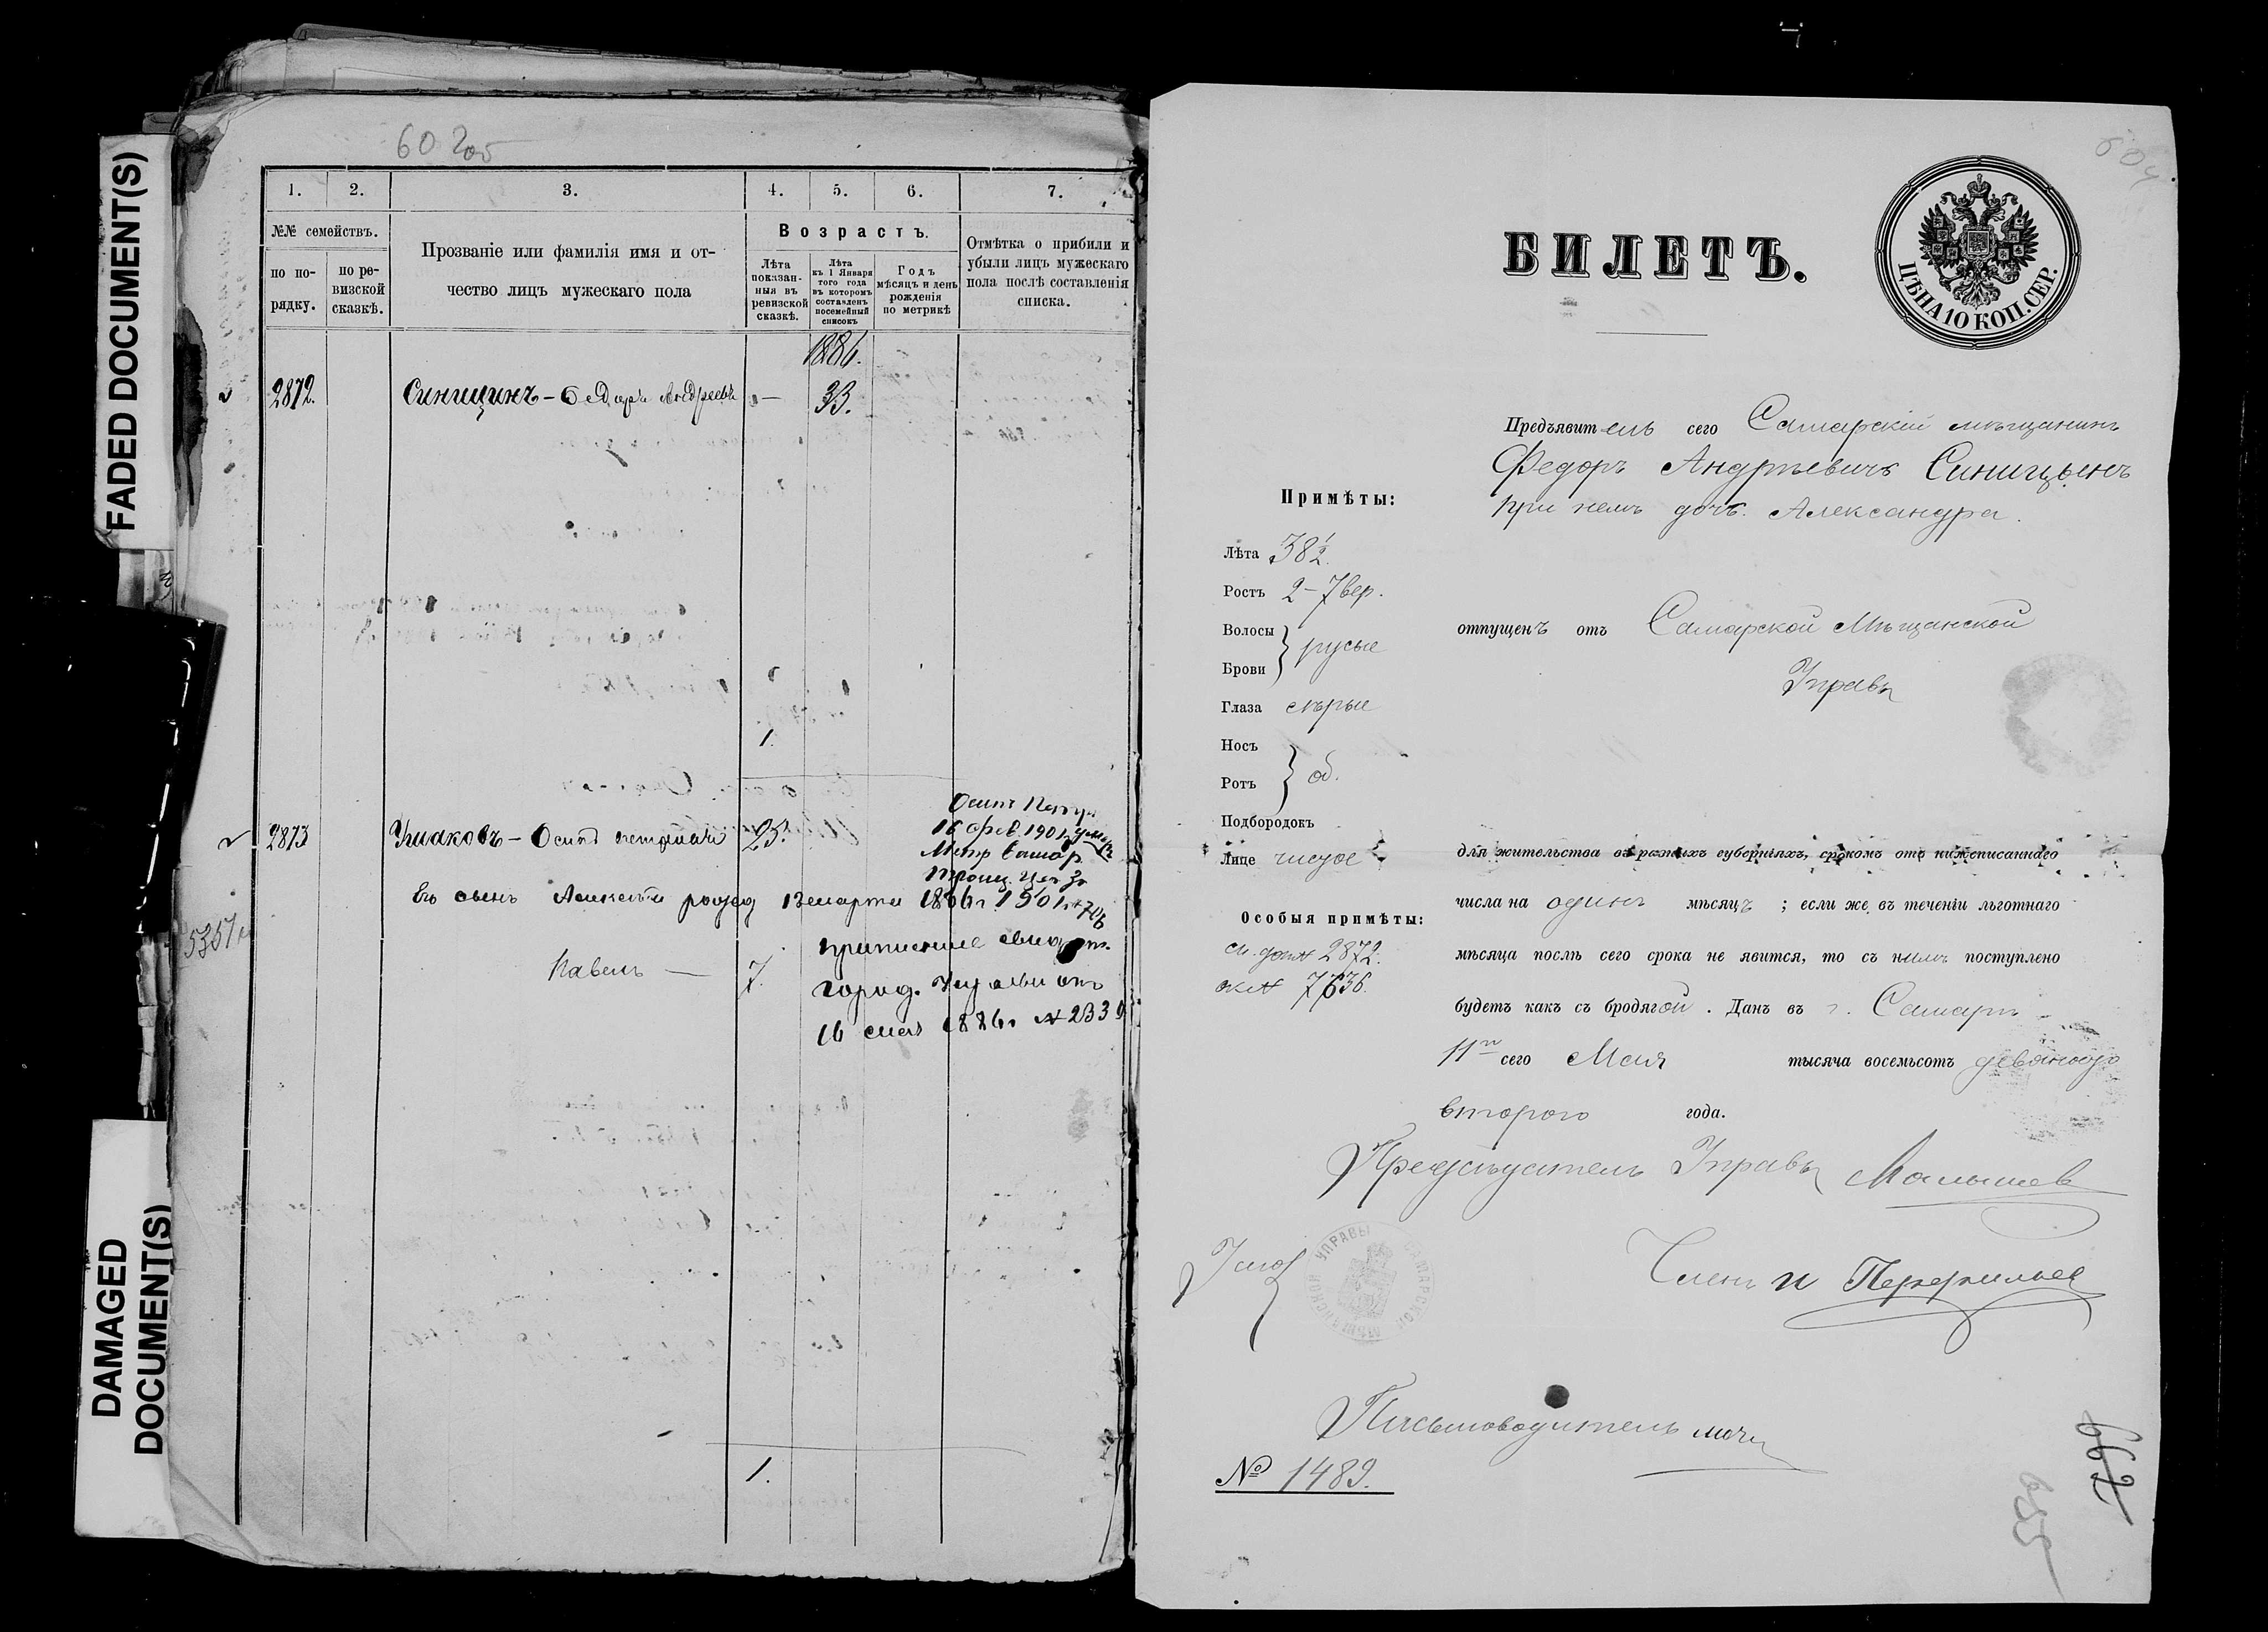 FADED DOCUMENT(S)
DAMAGED
DOCUMENT(S)
60 2об
1. 2. 3. 4. 5. 6. 7.
№№ семействъ.
по по-
рядку.
по ре-
визской
сказкѣ.
Прозваніе или фамилія имя и от-
чество лицъ мужескаго пола
Возрастъ.
Лѣта
показан-
ныя въ
ревизской
сказкѣ.
Лѣта
къ 1 Января
того года
въ которомъ
составленъ
посемейный
списокъ
Годъ
мѣсяцъ и день
рожденія
по метрикѣ
Отмѣтка о прибыли и
убыли лицъ мужескаго
пола послѣ составленія
списка.
1886.
2872. Синицинъ - Федоръ Андреевъ — 33.
1.
Осипъ Петр
16 фев. 1901 г умеръ
Метр Самар
Троиц. Цер за
1901 г № 70
2873 Ушаковъ - Осипъ 25.
Его сынъ Алексѣй рожд 13 марта 1886 г.
5351
Павелъ — 7.
городъ. Управы отъ
16 1886 г № 2339
1.
604
БИЛЕТЪ.
ЦѢНА 10 КОП. СЕР.
Предъявитель сего Самарскій мѣщанинъ
Федоръ Андреевичъ Синицынъ
при немъ дочь Александра.
Примѣты:
Лѣта 38 1/2.
Ростъ 2-7 вер.
Волосы
Брови } русые
Глаза сѣрые
Носъ
Ротъ } об.
Подбородокъ
Лице чистое
Особыя примѣты:
2872.
7636.
отпущенъ отъ Самарской Мѣщанской
Управы
для жительства въ разныхъ губерніяхъ, срокомъ отъ нижеписаннаго
числа на одинъ мѣсяцъ ; если же въ теченіи льготнаго
мѣсяца послѣ сего срока не явится, то съ нимъ поступлено
будетъ какъ съ бродягой . Данъ въ г. Самарѣ
11го сего Мая тысяча восемьсотъ девяносто
второго года.
Предсѣдатель Управы Малышев
УПРАВЫ САМАРСКОЙ МѢЩАНСКОЙ
Членъ
Письмоводитель
№ 1489.